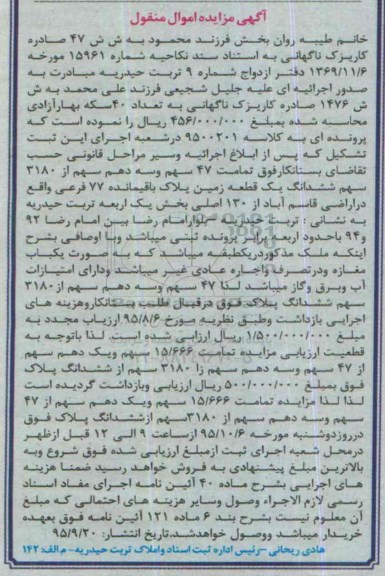 آگهی مزایده اموال منقول
خانم طیبه روان بخش فرزند محمود به ش ش ۴۷ صادره
کاریزک ناگهانی به استناد سند نکاحیه شماره ۱۵۹۶۱ مورخه
۱۳۶۹/۱۱/۶ دفتر ازدواج شماره ۹ تربت حیدریه مبادرت به
صدور اجرائیه ای علیه جلیل شجیعی فرزند علی محمد به ش
ش ۱۴۷۶ صادره کاریزک ناگهانی به تعداد ۴۰سکه بهارآزادی
محاسبه شده بمبلغ ۴۵۶/۰۰۰/۰۰۰ ریال را نموده است که
پرونده ای به کلاسه ۹۵۰۰۲۰۱ درشعبه اجرای این ثبت
تشکیل که پس از ابلاغ اجرائیه وسیر مراحل قانونی حسب
تقاضای بستانکارفوق تمامت ۴۷ سهم وسه دهم سهم از ۳۱۸۰
سهم ششدانگ یک قطعه زمین پلاک باقیمانده ۷۷ فرعی واقع
دراراضی قاسم آباد از ۱۳۰ اصلی بخش یک اربعه تربت حیدریه
به نشانی : تربت حیدریه – بلوارامام رضا بین امام رضا ۹۲
و۹۴ باحدود اربعه برابر پرونده ثبتی میباشد وبا اوصافی بشرح
اینکه ملک مذکوردریکطبقه میباشد که به صورت یکباب
مغازه ودرتصرف واجاره عادی غیر میباشد ودارای امتیازات
آب وبرق وگاز میباشد لذا ۴۷ سهم وسه دهم سهم از۳۱۸۰
سهم ششدانگ پلاک فوق درقبال طلب بستانکاروهزینه های
اجرایی بازداشت وطبق نظریه مورخ ۹۵/۸/۶ ارزیاب مجدد به
مبلغ ۱/۵۰۰/۰۰۰/۰۰۰ ریال ارزیابی شده است لذا باتوجه به
قطعیت ارزیابی مزایده تمامت ۱۵/۶۶۶ سهم ویک دهم سهم
از ۴۷ سهم وسه دهم سهم از ۳۱۸۰ سهم از ششدانگ پلاک
فوق بمبلغ ۵۰۰/۰۰۰/۰۰۰ ریال ارزیابی وبازداشت گردیده است
لذا لذا مزایده تمامت ۱۵/۶۶۶ سهم ویک دهم سهم از ۴۷
سهم وسه دهم سهم از ۳۱۸۰سهم ازششدانگ پلاک فوق
درروزدوشنبه مورخه ۹۵/۱۰/۶ ازساعت ۹ الی ۱۲ قبل ازظهر
درمحل شعبه اجرای ثبت ازمبلغ ارزیابی شده فوق شروع وبه
بالاترین مبلغ پیشنهادی به فروش خواهد رسید ضمنا هزینه
های اجرایی بشرح ماده ۴۰ آئین نامه اجرای مفاد اسناد
رسمی لازم الاجراء وصول وسایر هزینه های احتمالی که مبلغ
آن معلوم نیست بشرح بند ۶ ماده ۱۲۱ آئین نامه فوق بعهده
خریدار میباشد ووصول خواهدشد.تاریخ انتشار: ۹۵/۹/۲۰
هادی ریحانی –رئیس اداره ثبت اسناد واملاک تربت حیدریه– م الف: ۱۴۲